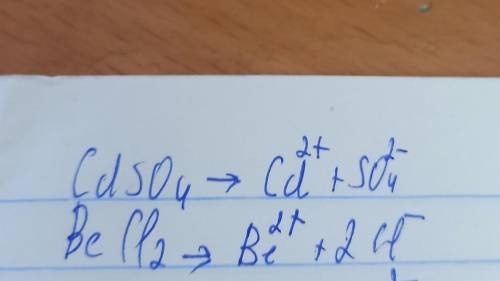 CdSO₄ → Cd²⁺ + SO₄²⁻
BeCl₂ → Be²⁺ + 2Cl⁻